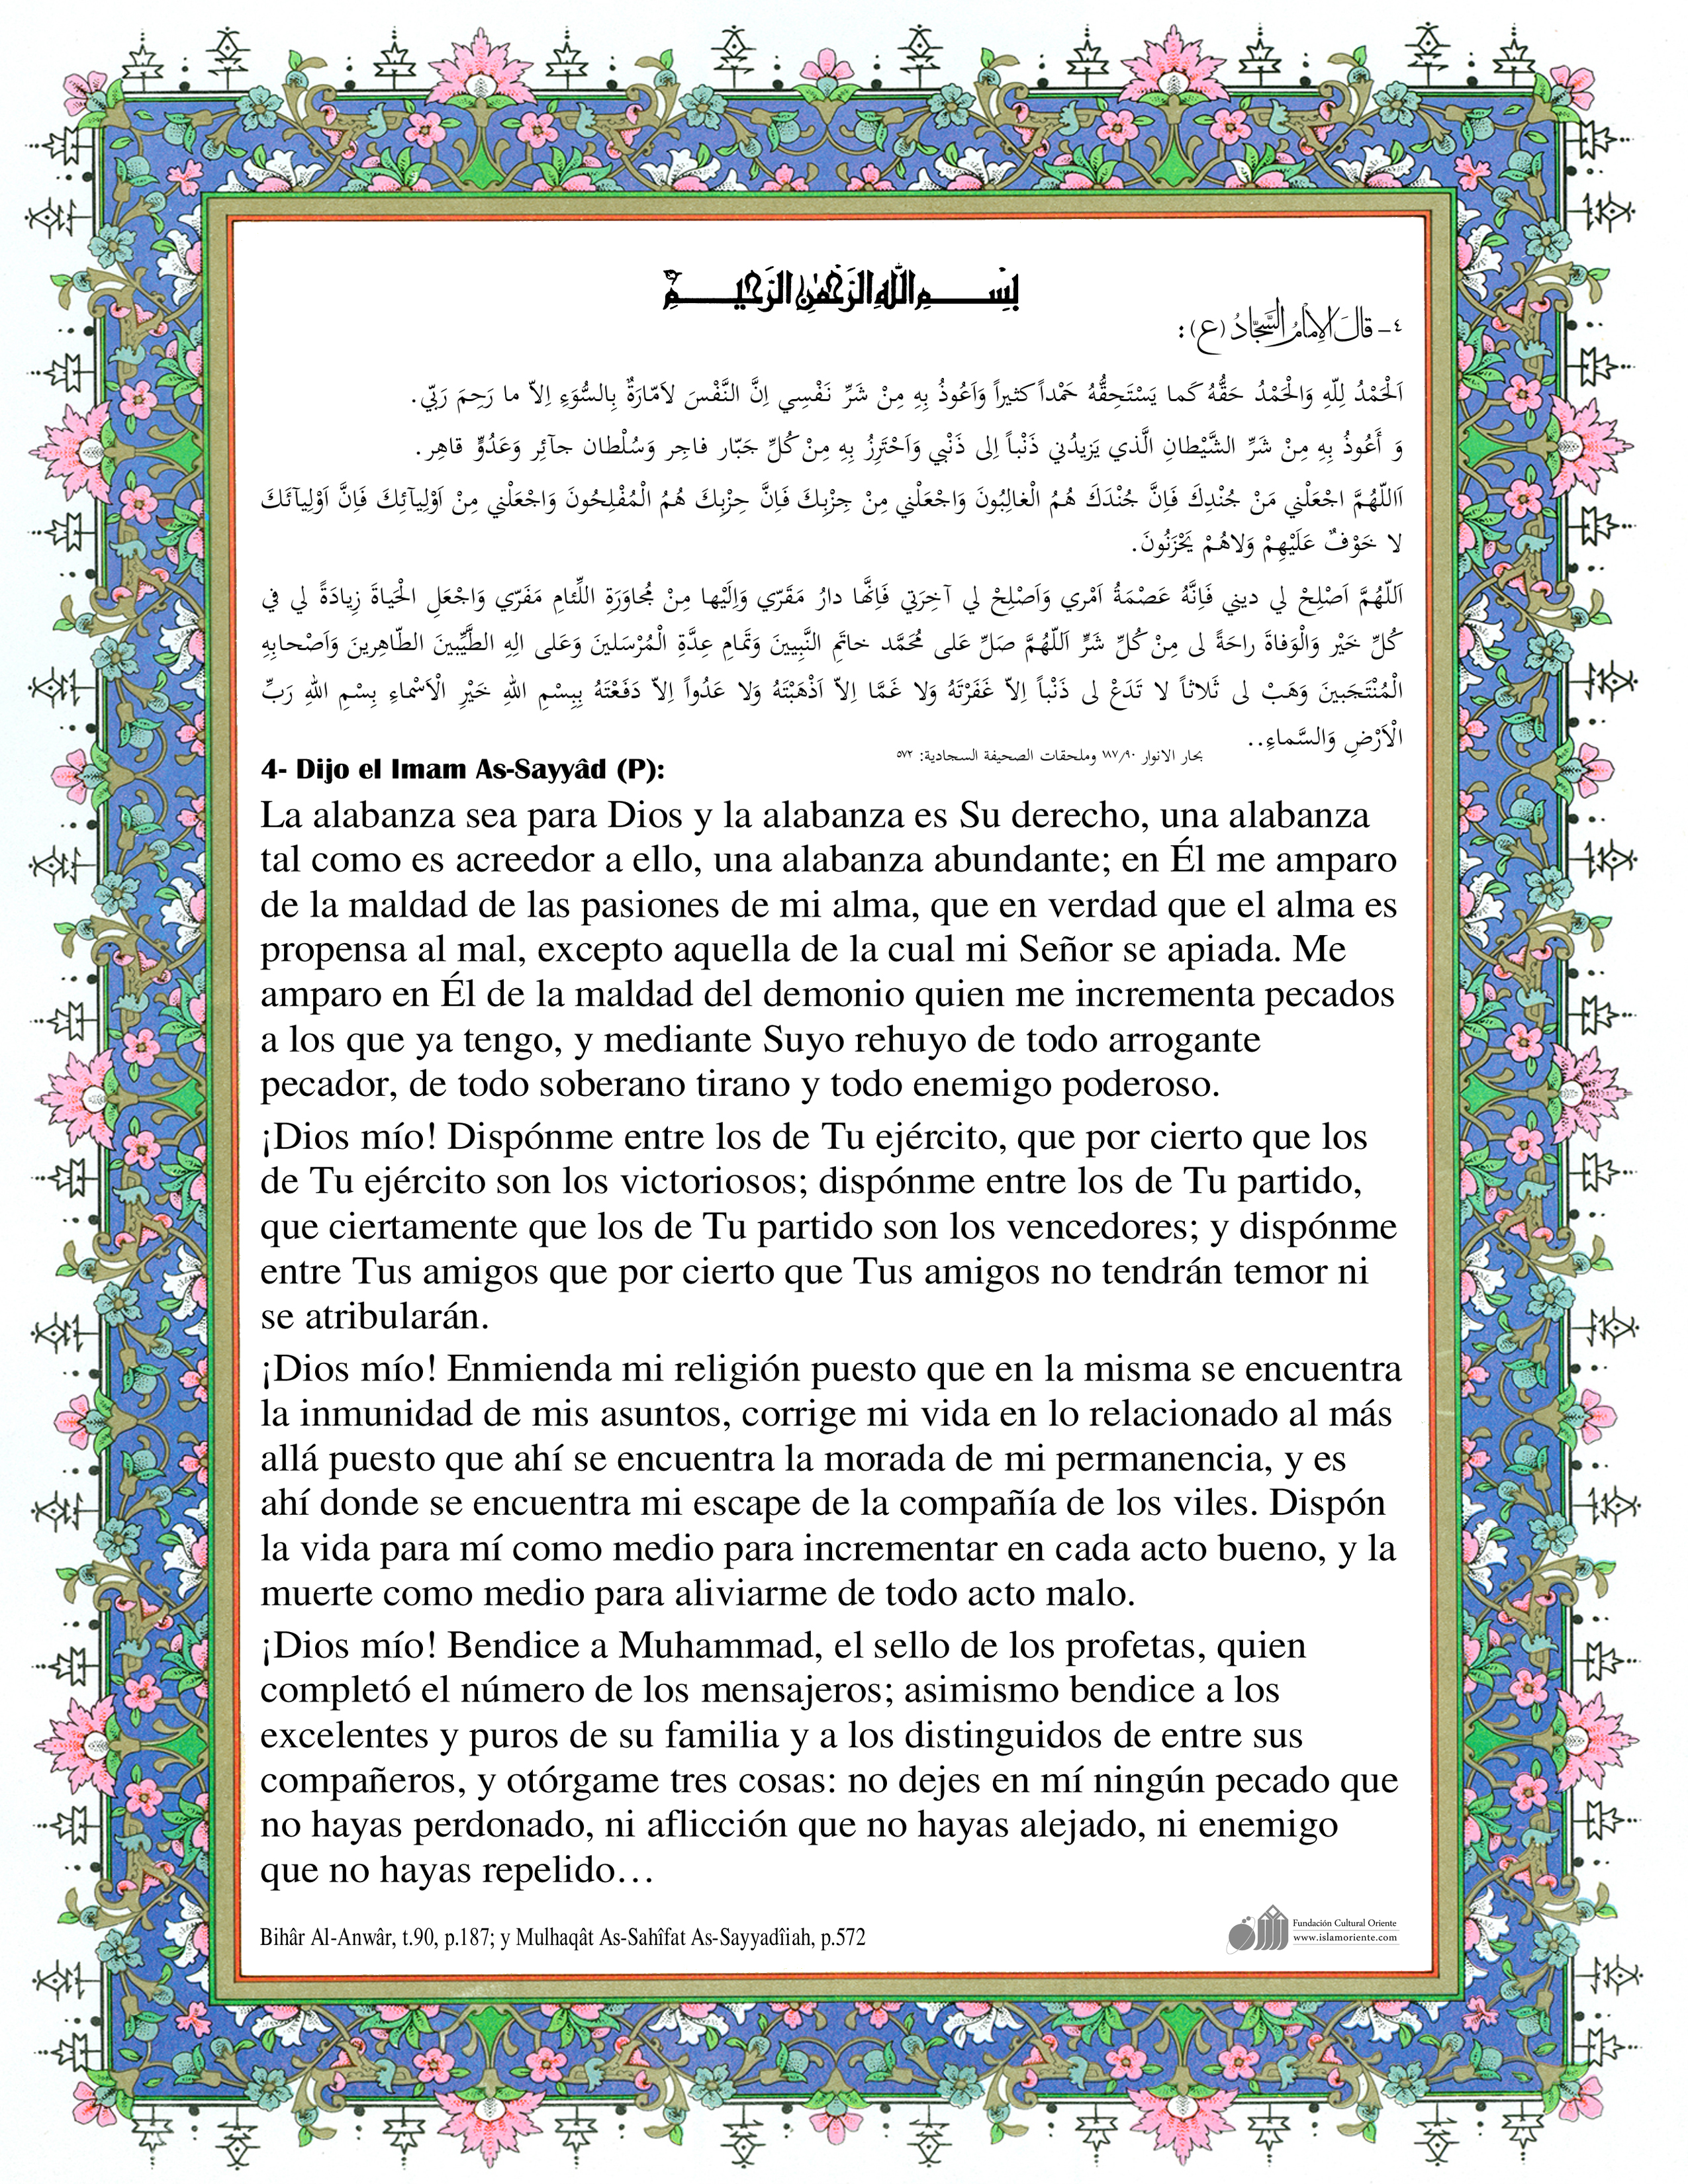 بِسْمِ اللهِ الرَّحْمٰنِ الرَّحِيمِ
٤- قالَ الإمامُ السَّجّادُ (ع):
اَلْحَمْدُ لِلّهِ وَالْحَمْدُ حَقُّهُ كَما يَسْتَحِقُّهُ حَمْداً كثيراً وَاَعُوذُ بِهِ مِنْ شَرِّ نَفْسِي اِنَّ النَّفْسَ لاَمّارَةٌ بِالسُّوَءِ اِلاّ ما رَحِمَ رَبّي.
وَ أَعُوذُ بِهِ مِنْ شَرِّ الشَّيْطانِ الَّذي يَزيدُني ذَنْباً اِلى ذَنْبي وَاَحْتَرِزُ بِهِ مِنْ كُلِّ جَبّار فاجِر وَسُلْطان جآئِر وَعَدُوٍّ قاهِر.
اَاللّهُمَّ اجْعَلْني مَنْ جُنْدِكَ فَاِنَّ جُنْدَكَ هُمُ الْغالِبُونَ وَاجْعَلْني مِنْ حِزْبِكَ فَاِنَّ حِزْبِكَ هُمُ الْمُفْلِحُونَ وَاجْعَلْني مِنْ اَوْلِيآئِكَ فَاِنَّ اَوْلِيآئَكَ
لا خَوْفٌ عَلَيْهِمْ وَلاهُمْ يَحْزَنُونَ.
اَللّهُمَّ اَصْلِحْ لي ديني فَاِنَّهُ عَصْمَةُ اَمْري وَاَصْلِحْ لي آخِرَتي فَاِنَّها دارُ مَقَرّي وَاِلَيْها مِنْ مُجاوَرَةِ اللِّئامِ مَفَرّي وَاجْعَلِ الْحَياةَ زِيادَةً لي في
كُلِّ خَيْر وَالْوَفاةَ راحَةً لى مِنْ كُلِّ شَرٍّ اَللّهُمَّ صَلِّ عَلى مُحَمَّد خاتَمِ النَّبِيينَ وَتَمامِ عِدَّةِ الْمُرْسَلينَ وَعَلى الِهِ الطَّيِّبينَ الطّاهِرينَ وَاَصْحابِهِ
الْمُنْتَجَبينَ وَهَبْ لى ثَلاثاً لا تَدَعْ لى ذَنْباً اِلاّ غَفَرْتَهُ وَلا غَمَّا اِلاّ اَذْهَبْتَهُ وَلا عَدُواً اِلاّ دَفَعْتَهُ بِبِسْمِ اللهِ خَيْرِ الْاَسْماءِ بِسْمِ اللهِ رَبِّ
الْاَرْضِ وَالسَّماءِ..
بحار الانوار ١٨٧/٩٠ وملحقات الصحيفة السجادية: ٥٧٢
4- Dijo el Imam As-Sayyâd (P):
La alabanza sea para Dios y la alabanza es Su derecho, una alabanza
tal como es acreedor a ello, una alabanza abundante; en Él me amparo
de la maldad de las pasiones de mi alma, que en verdad que el alma es
propensa al mal, excepto aquella de la cual mi Señor se apiada. Me
amparo en Él de la maldad del demonio quien me incrementa pecados
a los que ya tengo, y mediante Suyo rehuyo de todo arrogante
pecador, de todo soberano tirano y todo enemigo poderoso.
¡Dios mío! Dispónme entre los de Tu ejército, que por cierto que los
de Tu ejército son los victoriosos; dispónme entre los de Tu partido,
que ciertamente que los de Tu partido son los vencedores; y dispónme
entre Tus amigos que por cierto que Tus amigos no tendrán temor ni
se atribularán.
¡Dios mío! Enmienda mi religión puesto que en la misma se encuentra
la inmunidad de mis asuntos, corrige mi vida en lo relacionado al más
allá puesto que ahí se encuentra la morada de mi permanencia, y es
ahí donde se encuentra mi escape de la compañía de los viles. Dispón
la vida para mí como medio para incrementar en cada acto bueno, y la
muerte como medio para aliviarme de todo acto malo.
¡Dios mío! Bendice a Muhammad, el sello de los profetas, quien
completó el número de los mensajeros; asimismo bendice a los
excelentes y puros de su familia y a los distinguidos de entre sus
compañeros, y otórgame tres cosas: no dejes en mí ningún pecado que
no hayas perdonado, ni aflicción que no hayas alejado, ni enemigo
que no hayas repelido…
Bihâr Al-Anwâr, t.90, p.187; y Mulhaqât As-Sahîfat As-Sayyadîiah, p.572
Fundación Cultural Oriente
www.islamoriente.com